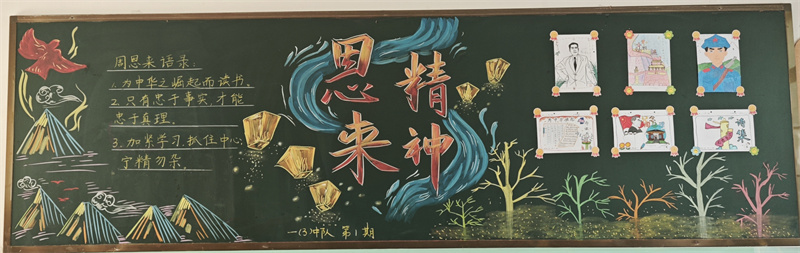 周恩来语录:
1. 为中华之崛起而读书。
2. 只有忠于事实,才能
忠于真理。
3. 加紧学习,抓住中心
宁精勿杂。
恩来
精神
一(3)中队 第1期